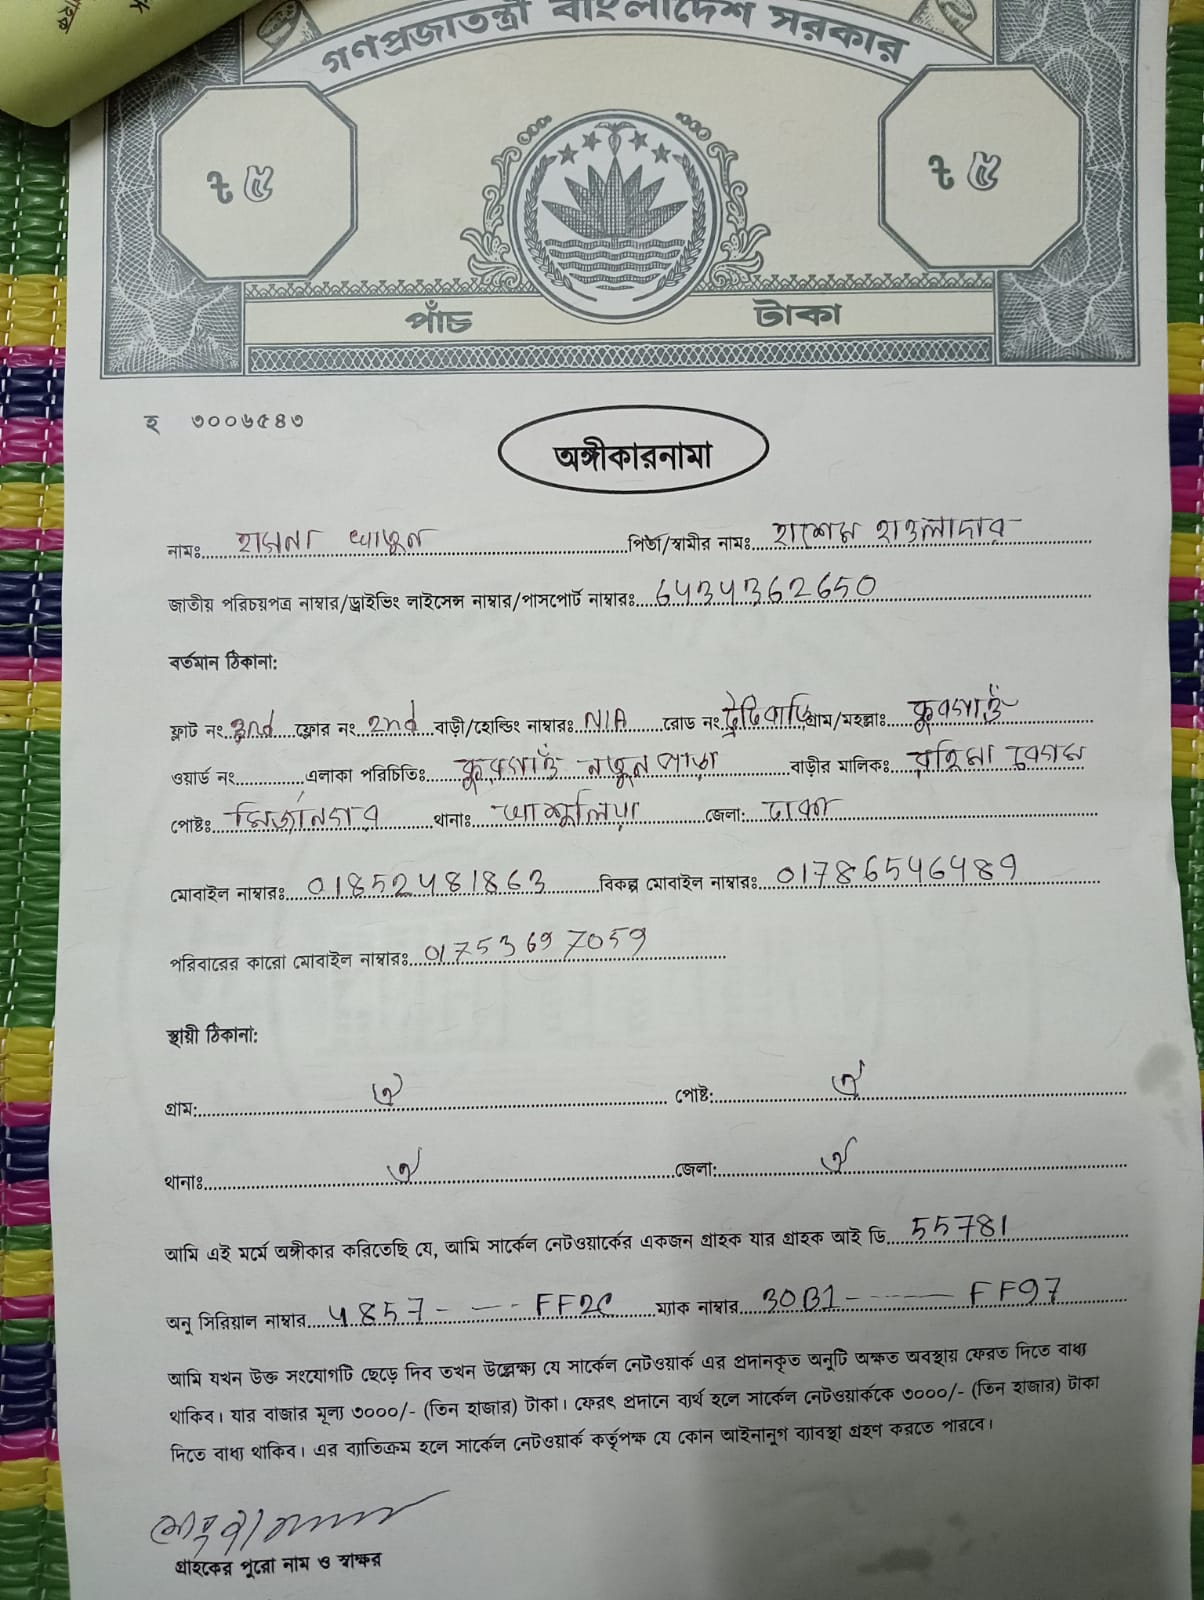 গণপ্রজাতন্ত্রী বাংলাদেশ সরকার
৳ ৫ ৳ ৫
পাঁচ টাকা
হ ৩০০৬৫৪৩
অঙ্গীকারনামা
নামঃ হাসনা খাতুন পিতা/স্বামীর নামঃ হাশেম হাওলাদার
জাতীয় পরিচয়পত্র নাম্বার/ড্রাইভিং লাইসেন্স নাম্বার/পাসপোর্ট নাম্বারঃ 6434362650
বর্তমান ঠিকানা:
ফ্লাট নং 2nd ফ্লোর নং 2nd বাড়ী/হোল্ডিং নাম্বারঃ N/A রোড নং গ্রাম/মহল্লাঃ কুরগাঁও
ওয়ার্ড নং এলাকা পরিচিতিঃ কুরগাঁও নতুন পাড়া বাড়ীর মালিকঃ রহিমা বেগম
পোষ্টঃ মির্জানগর থানাঃ আশুলিয়া জেলা: ঢাকা
মোবাইল নাম্বারঃ 01852481863 বিকল্প মোবাইল নাম্বারঃ 01786546489
পরিবারের কারো মোবাইল নাম্বারঃ 01753697059
স্থায়ী ঠিকানা:
গ্রাম: ঐ পোষ্ট: ঐ
থানাঃ ঐ জেলা: ঐ
আমি এই মর্মে অঙ্গীকার করিতেছি যে, আমি সার্কেল নেটওয়ার্কের একজন গ্রাহক যার গ্রাহক আই ডি 55781
অনু সিরিয়াল নাম্বার 4857- --- FF2C ম্যাক নাম্বার 30B1- ----- FF97
আমি যখন উক্ত সংযোগটি ছেড়ে দিব তখন উল্লেক্ষ্য যে সার্কেল নেটওয়ার্ক এর প্রদানকৃত অনুটি অক্ষত অবস্থায় ফেরত দিতে বাধ্য
থাকিব। যার বাজার মূল্য ৩০০০/- (তিন হাজার) টাকা। ফেরৎ প্রদানে ব্যর্থ হলে সার্কেল নেটওয়ার্ককে ৩০০০/- (তিন হাজার) টাকা
দিতে বাধ্য থাকিব। এর ব্যাতিক্রম হলে সার্কেল নেটওয়ার্ক কর্তৃপক্ষ যে কোন আইনানুগ ব্যাবস্থা গ্রহণ করতে পারবে।
গ্রাহকের পুরো নাম ও স্বাক্ষর